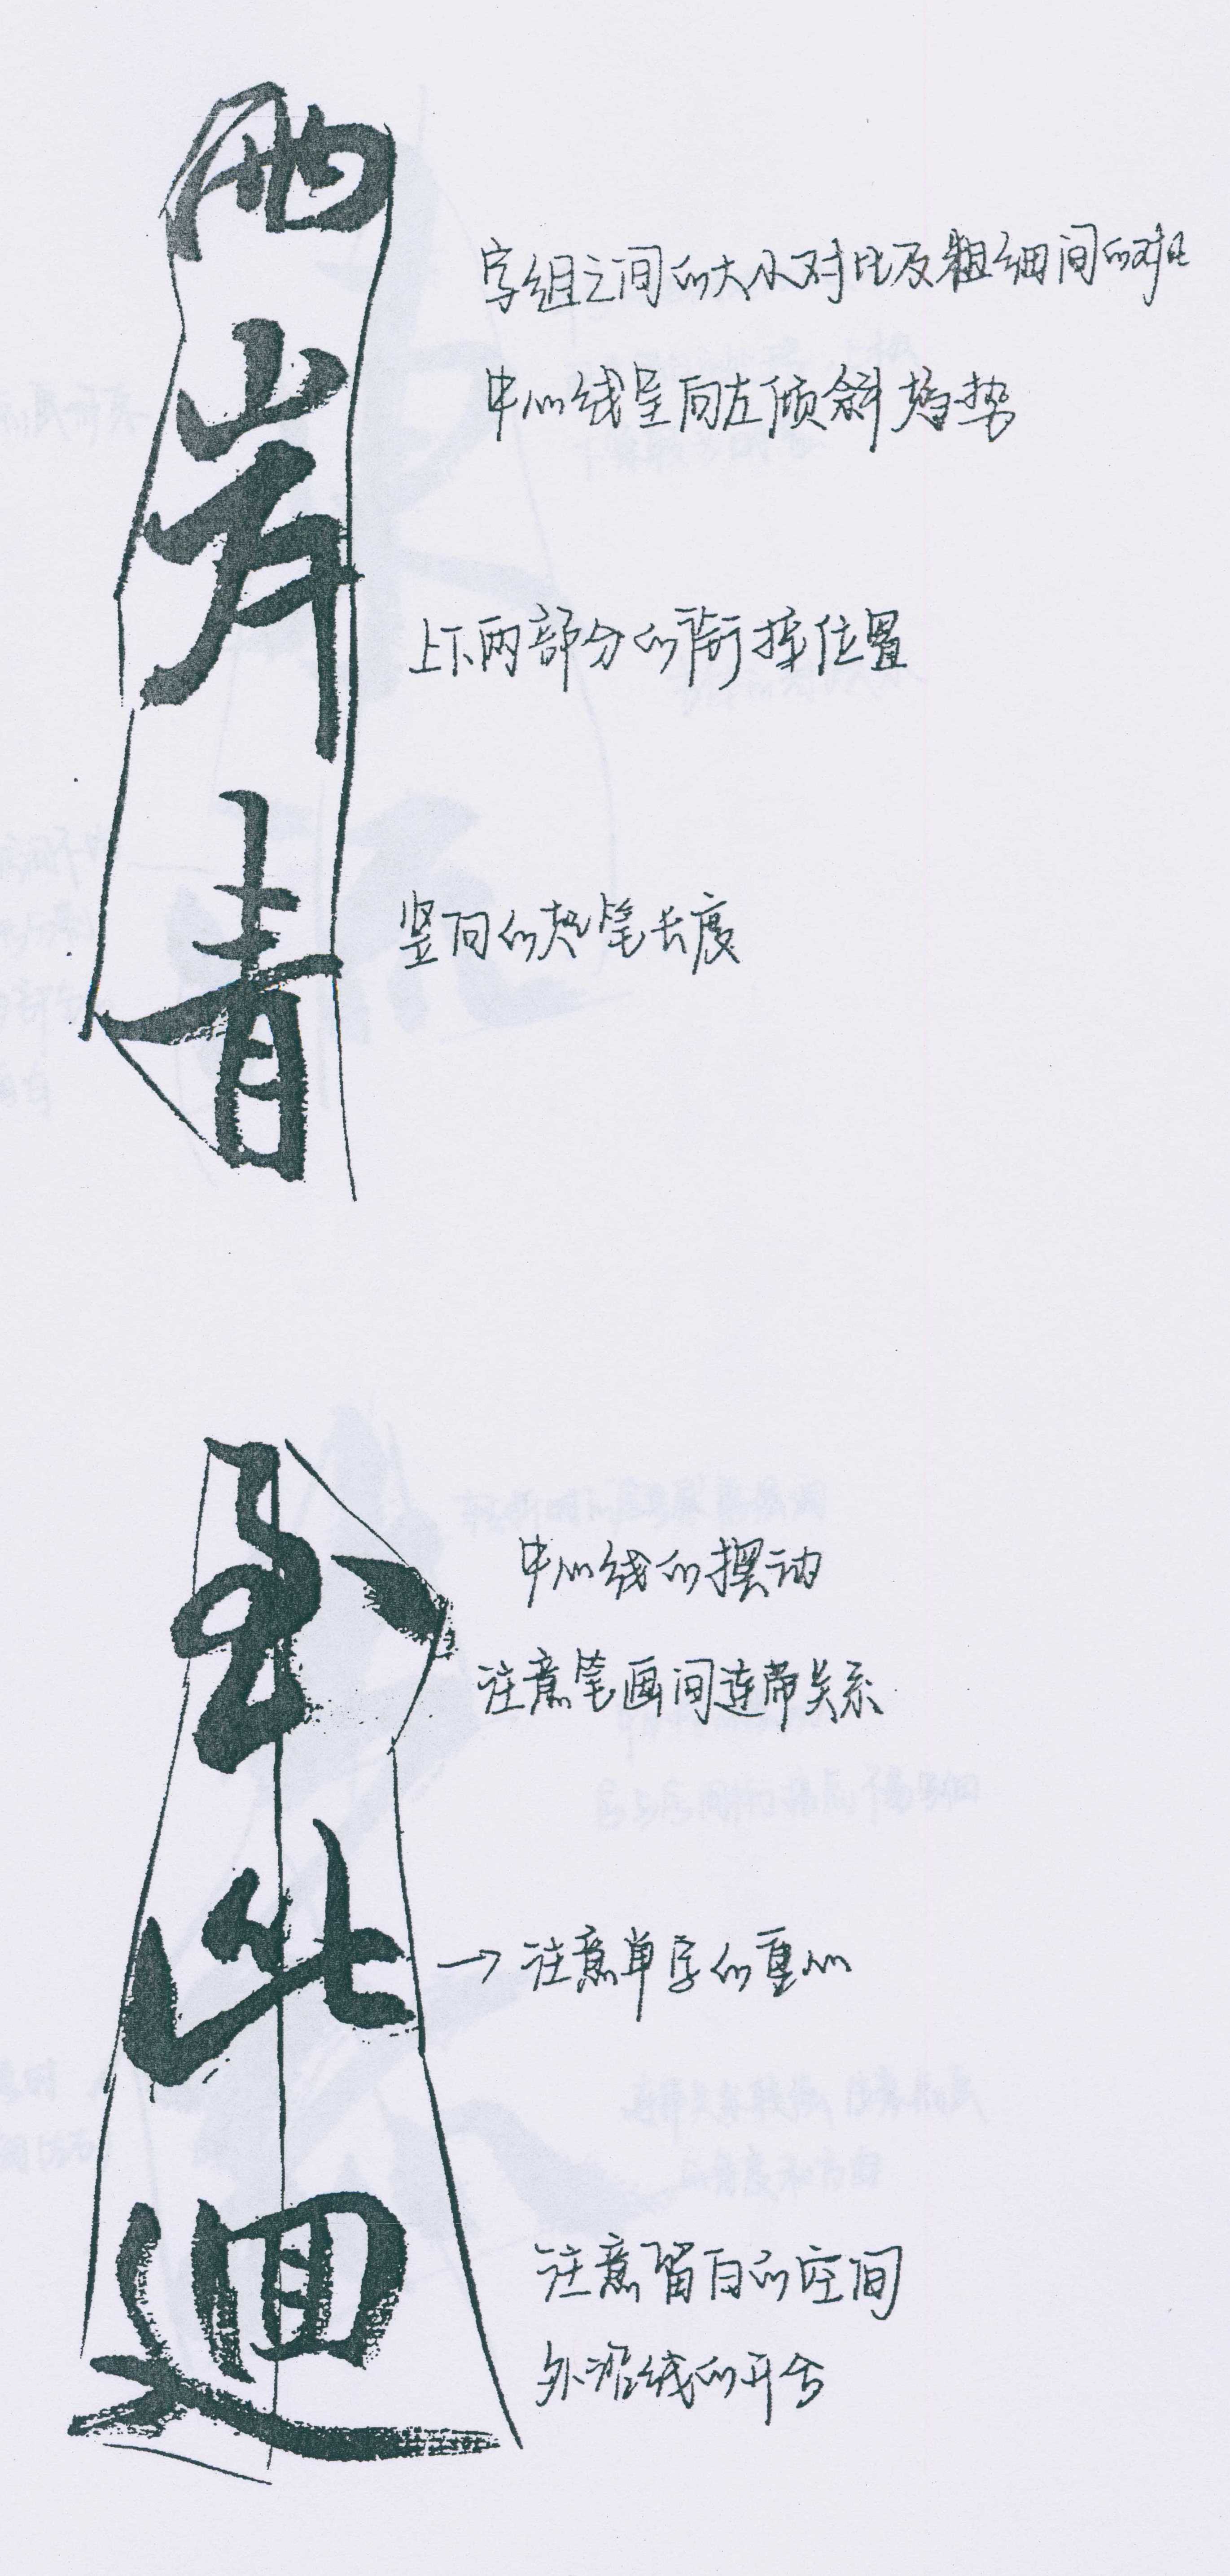 两岸青
字组之间的大小对比及粗细间的对比
中心线呈向左倾斜趋势
上下两部分的衔接位置
竖向的起笔长度
至此迴
中心线的摆动
注意笔画间连带关系
→注意单字的重心
注意留白的空间
外沿线的开合